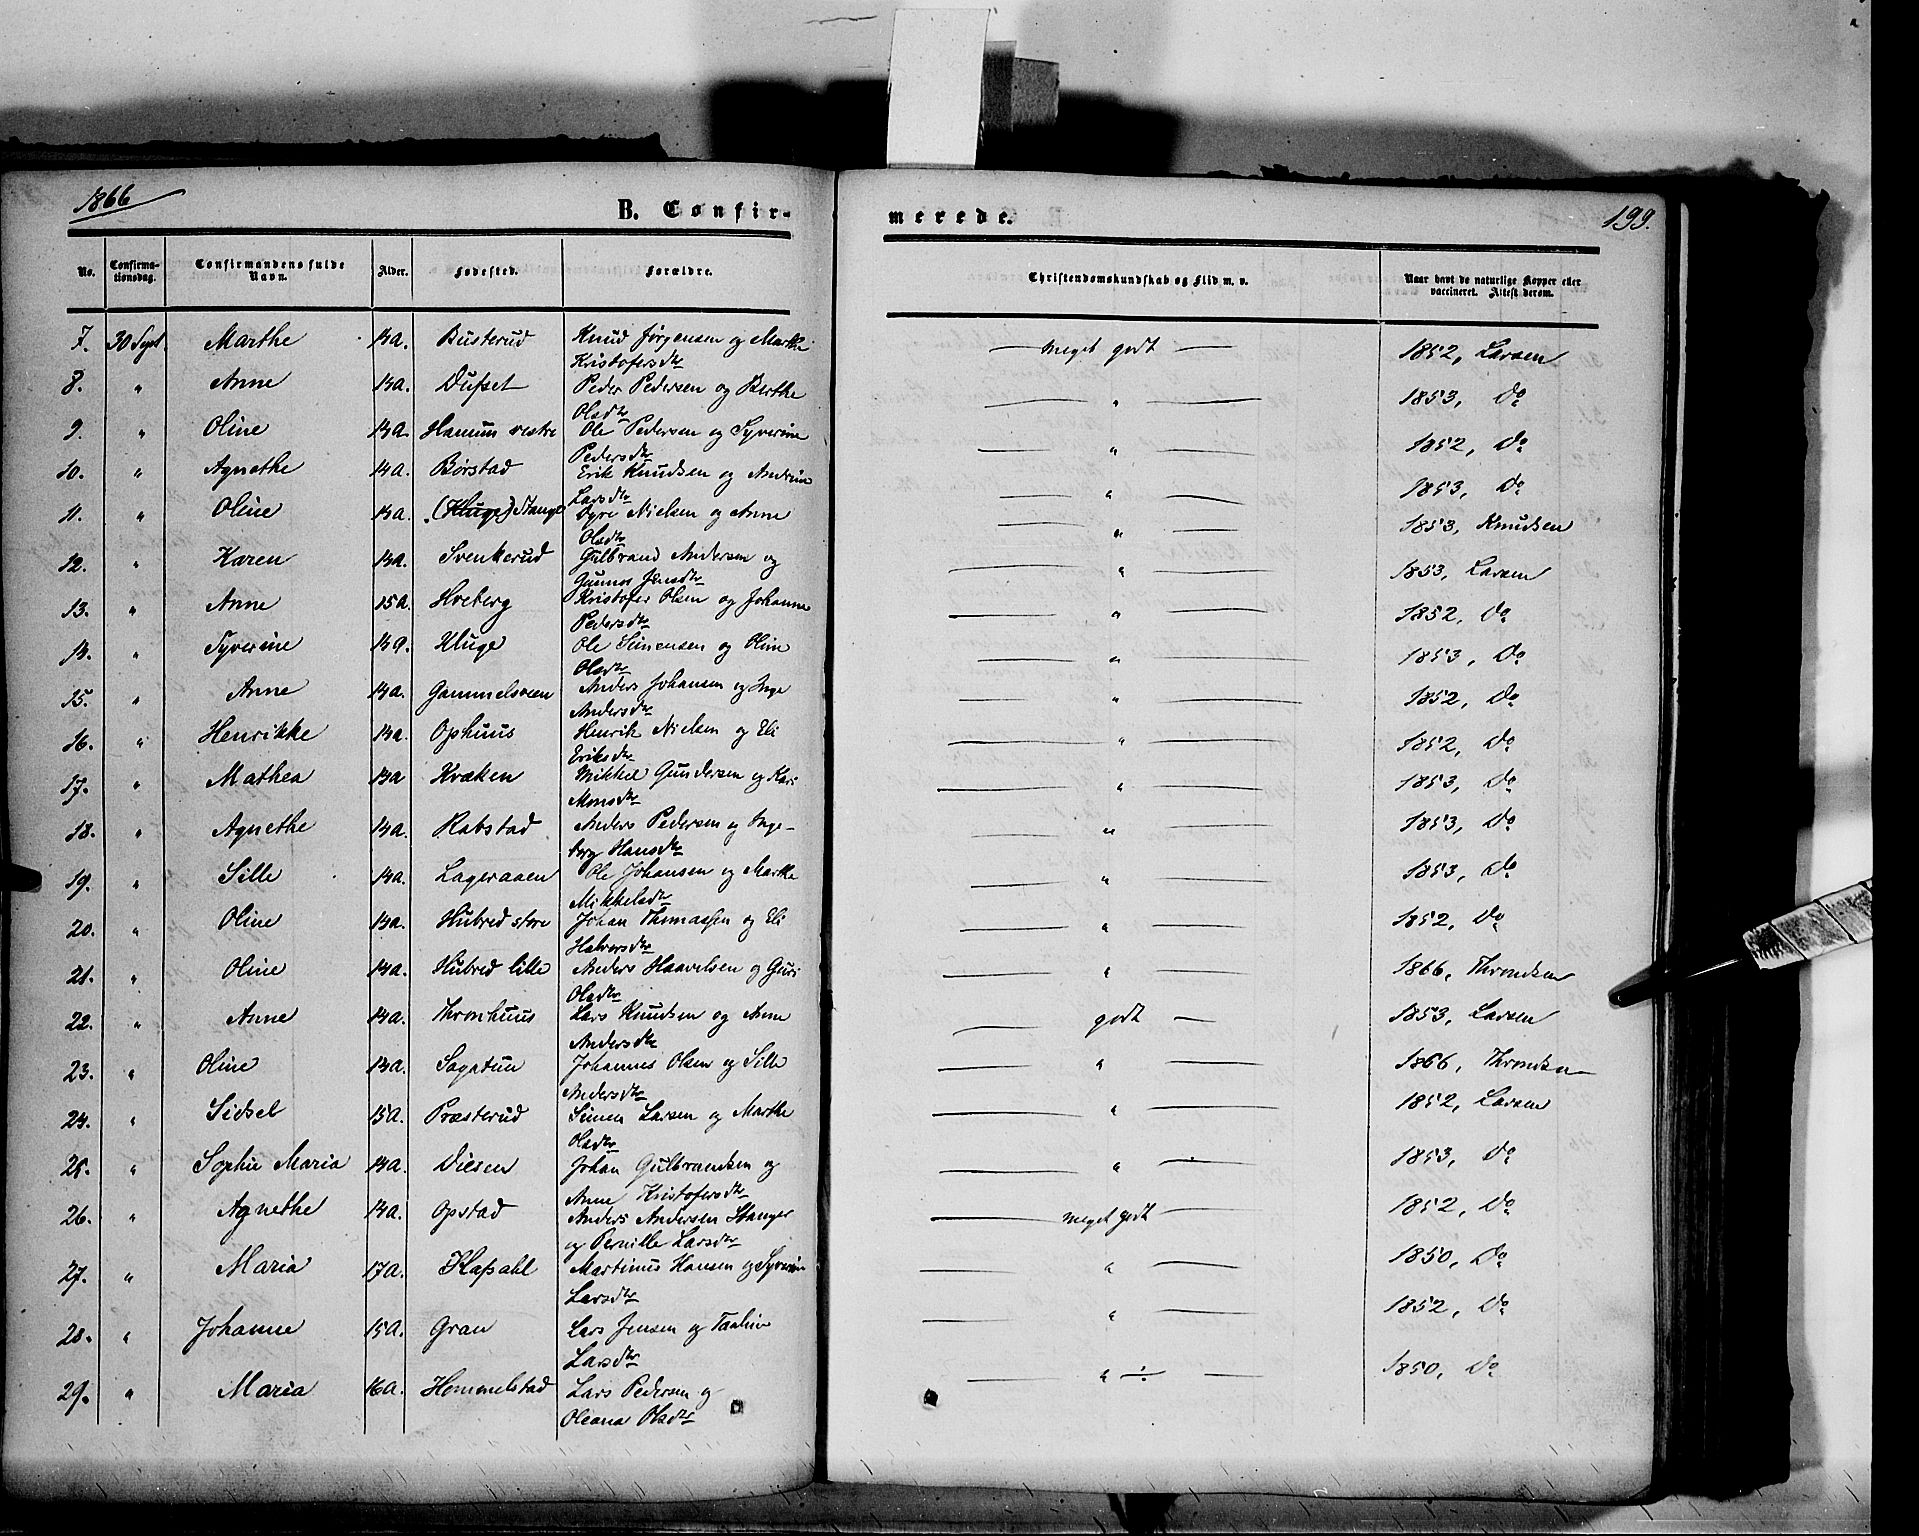 1866
B. Confir-
merede.
199.
No. Confirma-tionsdag. Confirmandens fulde Navn. Alder. Fødested. Forældre. Christendomskundskab og Flid m. v. Naar havt de naturlige Kopper eller vaccineret. Attest derom.
7. 30 Sept. Marthe 14a. Busterud Knud Jørgensen og Marthe — meget godt — 1852, Larsen
Kristofersdtr
8. " Anne 14a. Dufset Peder Pedersen og Berthe — " — 1853, Do
Olsdtr
9. " Oline 14a. Hamum vestre Ole Pedersen og Syverine — " — 1852, Do
Pedersdtr
10. " Agnethe 14a. Børstad Erik Knudsen og Andrine — " — 1853, Do
Larsdtr
11. " Oline 14a. (Kluge) Stange Dyre Nielsen og Anne — " — 1853, Knudsen
Olsdtr
12. " Karen 14a. Svenkerud Gulbrand Andersen og — " — 1853, Larsen
Gunnor Jensdtr
13. " Anne 15a. Hveberg Kristofer Olsen og Johanne — " — 1852, Do
Pedersdtr
14. " Syverine 14a. Kluge Ole Simensen og Oline — " — 1853, Do
Olsdtr
15. " Anne 14a. Gammelsveen Anders Johansen og Inge — " — 1852, Do
Andersdtr
16. " Henrikke 14a. Ophuus Henrik Nielsen og Eli — " — 1852, Do
Eriksdtr
17. " Mathea 14a Kræken Mikkel Gundersen og Kari — " — 1853, Do
Monsdtr
18. " Agnethe 14a. Rabstad Anders Pedersen og Inge- — " — 1853, Do
borg Hansdtr
19. " Sille 14a. Lageraaen Ole Johansen og Marthe — " — 1853, Do
Mikkelsdtr
20. " Oline 14a. Hubred store Johan Thomassen og Eli — " — 1852, Do
Halvorsdtr
21. " Oline 14a. Hubred lille Anders Haavelsen og Guri — " — 1866, Throndsen
Olsdtr
22. " Anne 14a. Thronhuus Lars Knudsen og Anne — godt — 1853, Larsen
Andersdtr
23. " Oline 14a. Sagatun Johannes Olsen og Sille — " — 1866, Throndsen
Andersdtr
24. " Sidsel 15a. Præsterud Simen Larsen og Marthe — " — 1852, Larsen
Olsdtr
25. " Sophie Maria 14a. Diesen Johan Gulbrandsen og — " — 1853, Do
Anne Kristofersdtr
26. " Agnethe 14a. Opstad Anders Andersen Stanger — meget godt — 1852, Do
og Pernille Larsdtr
27. " Maria 17a. Klafsahl Martinus Hansen og Syverine — " — 1850, Do
Larsdtr
28. " Johanne 15a. Gran Lars Jensen og Taaline — " — 1852, Do
Larsdtr
29. " Maria 16a. Hommelstad Lars Pedersen og — " ÷ — 1850, Do
Oleana Olsdtr